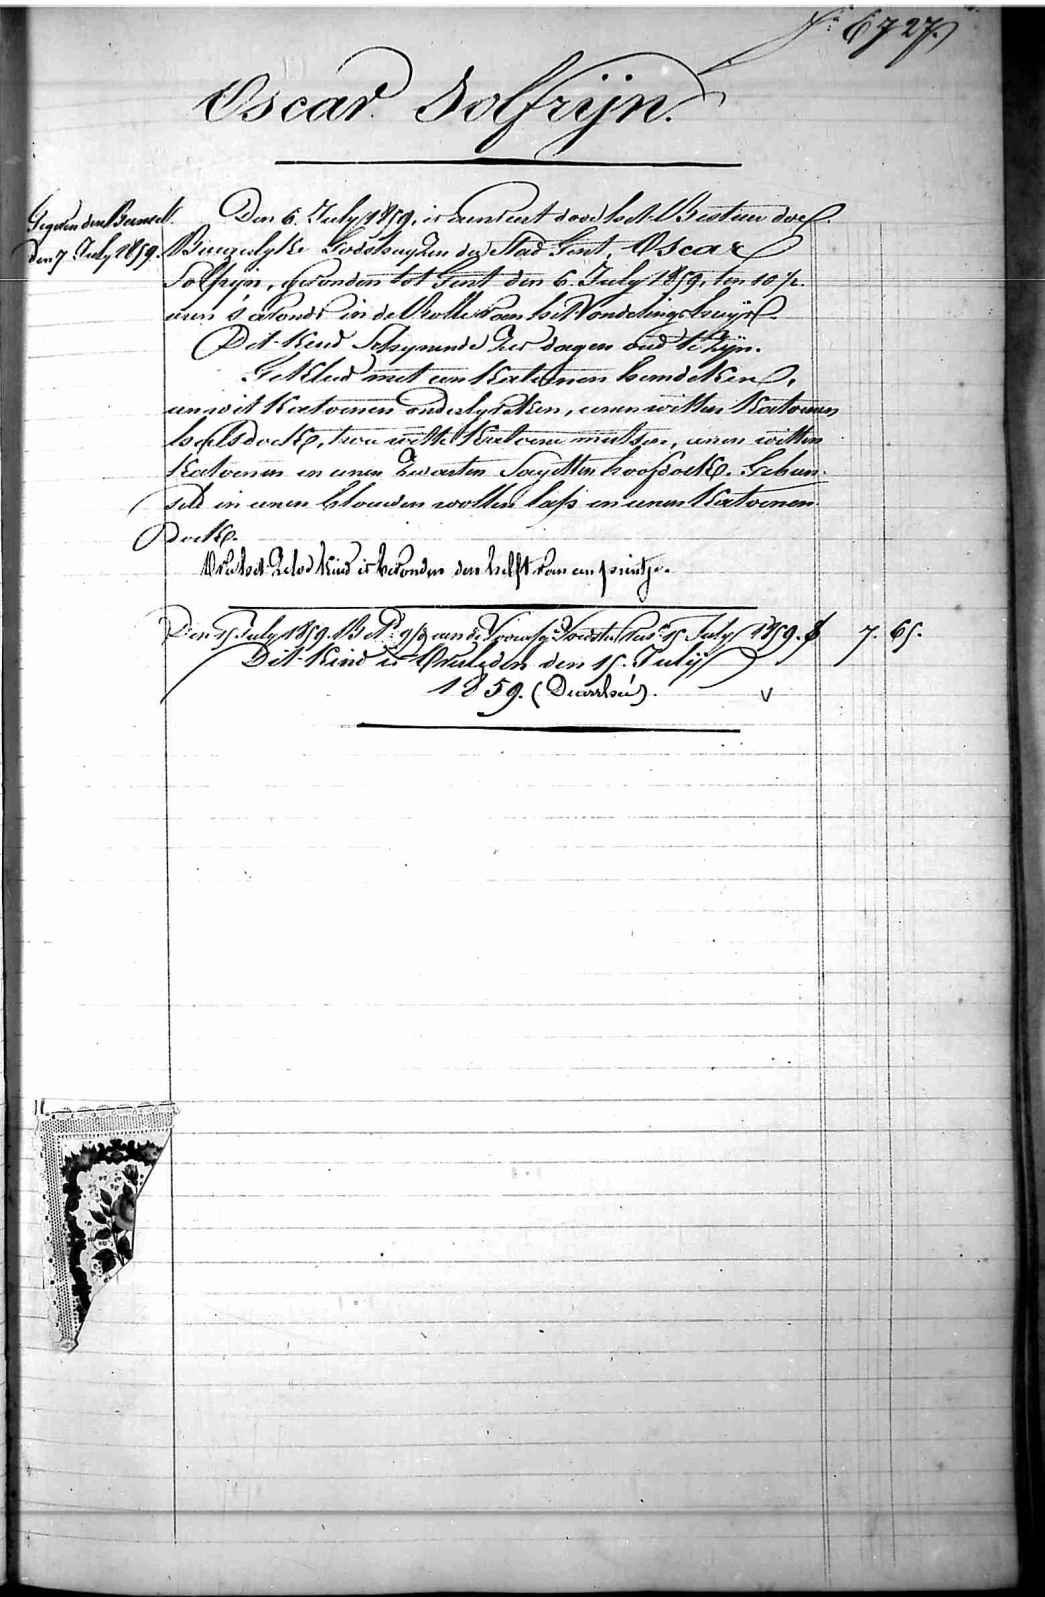 N: 6727.
Oscar Solfrijn.
den 7 July 1859.
Den 6. July 1859, is door het Bestier der
Burgerlyke Godshuyzen der Stad Gent, Oscar
Solfrijn, gevonden tot Gent den 6. July 1859, ten 10 ½
uren s'avonds in de Rolle van het Vondelingshuys.
Dit Kind schynende zes dagen oud te zyn.
Gekleed met een Katoenen hemdeken,
een wit Katoenen onderlyfken, eenen witten Katoenen
halsdoek, twee witte Katoene mutsen, eenen witten
Katoenen en eenen zwarten Sayetten hoofdoek. Gebun-
seld in eenen blauwen wollen laps en eenen Katoenen
Doek.
Op het Zelve Kind is bevonden den helft van een prentje.
Den 15 July 1859. 15 July 1859. f 7. 65.
Dit Kind is Overleden den 15. Julij
1859. (Diarrhée).